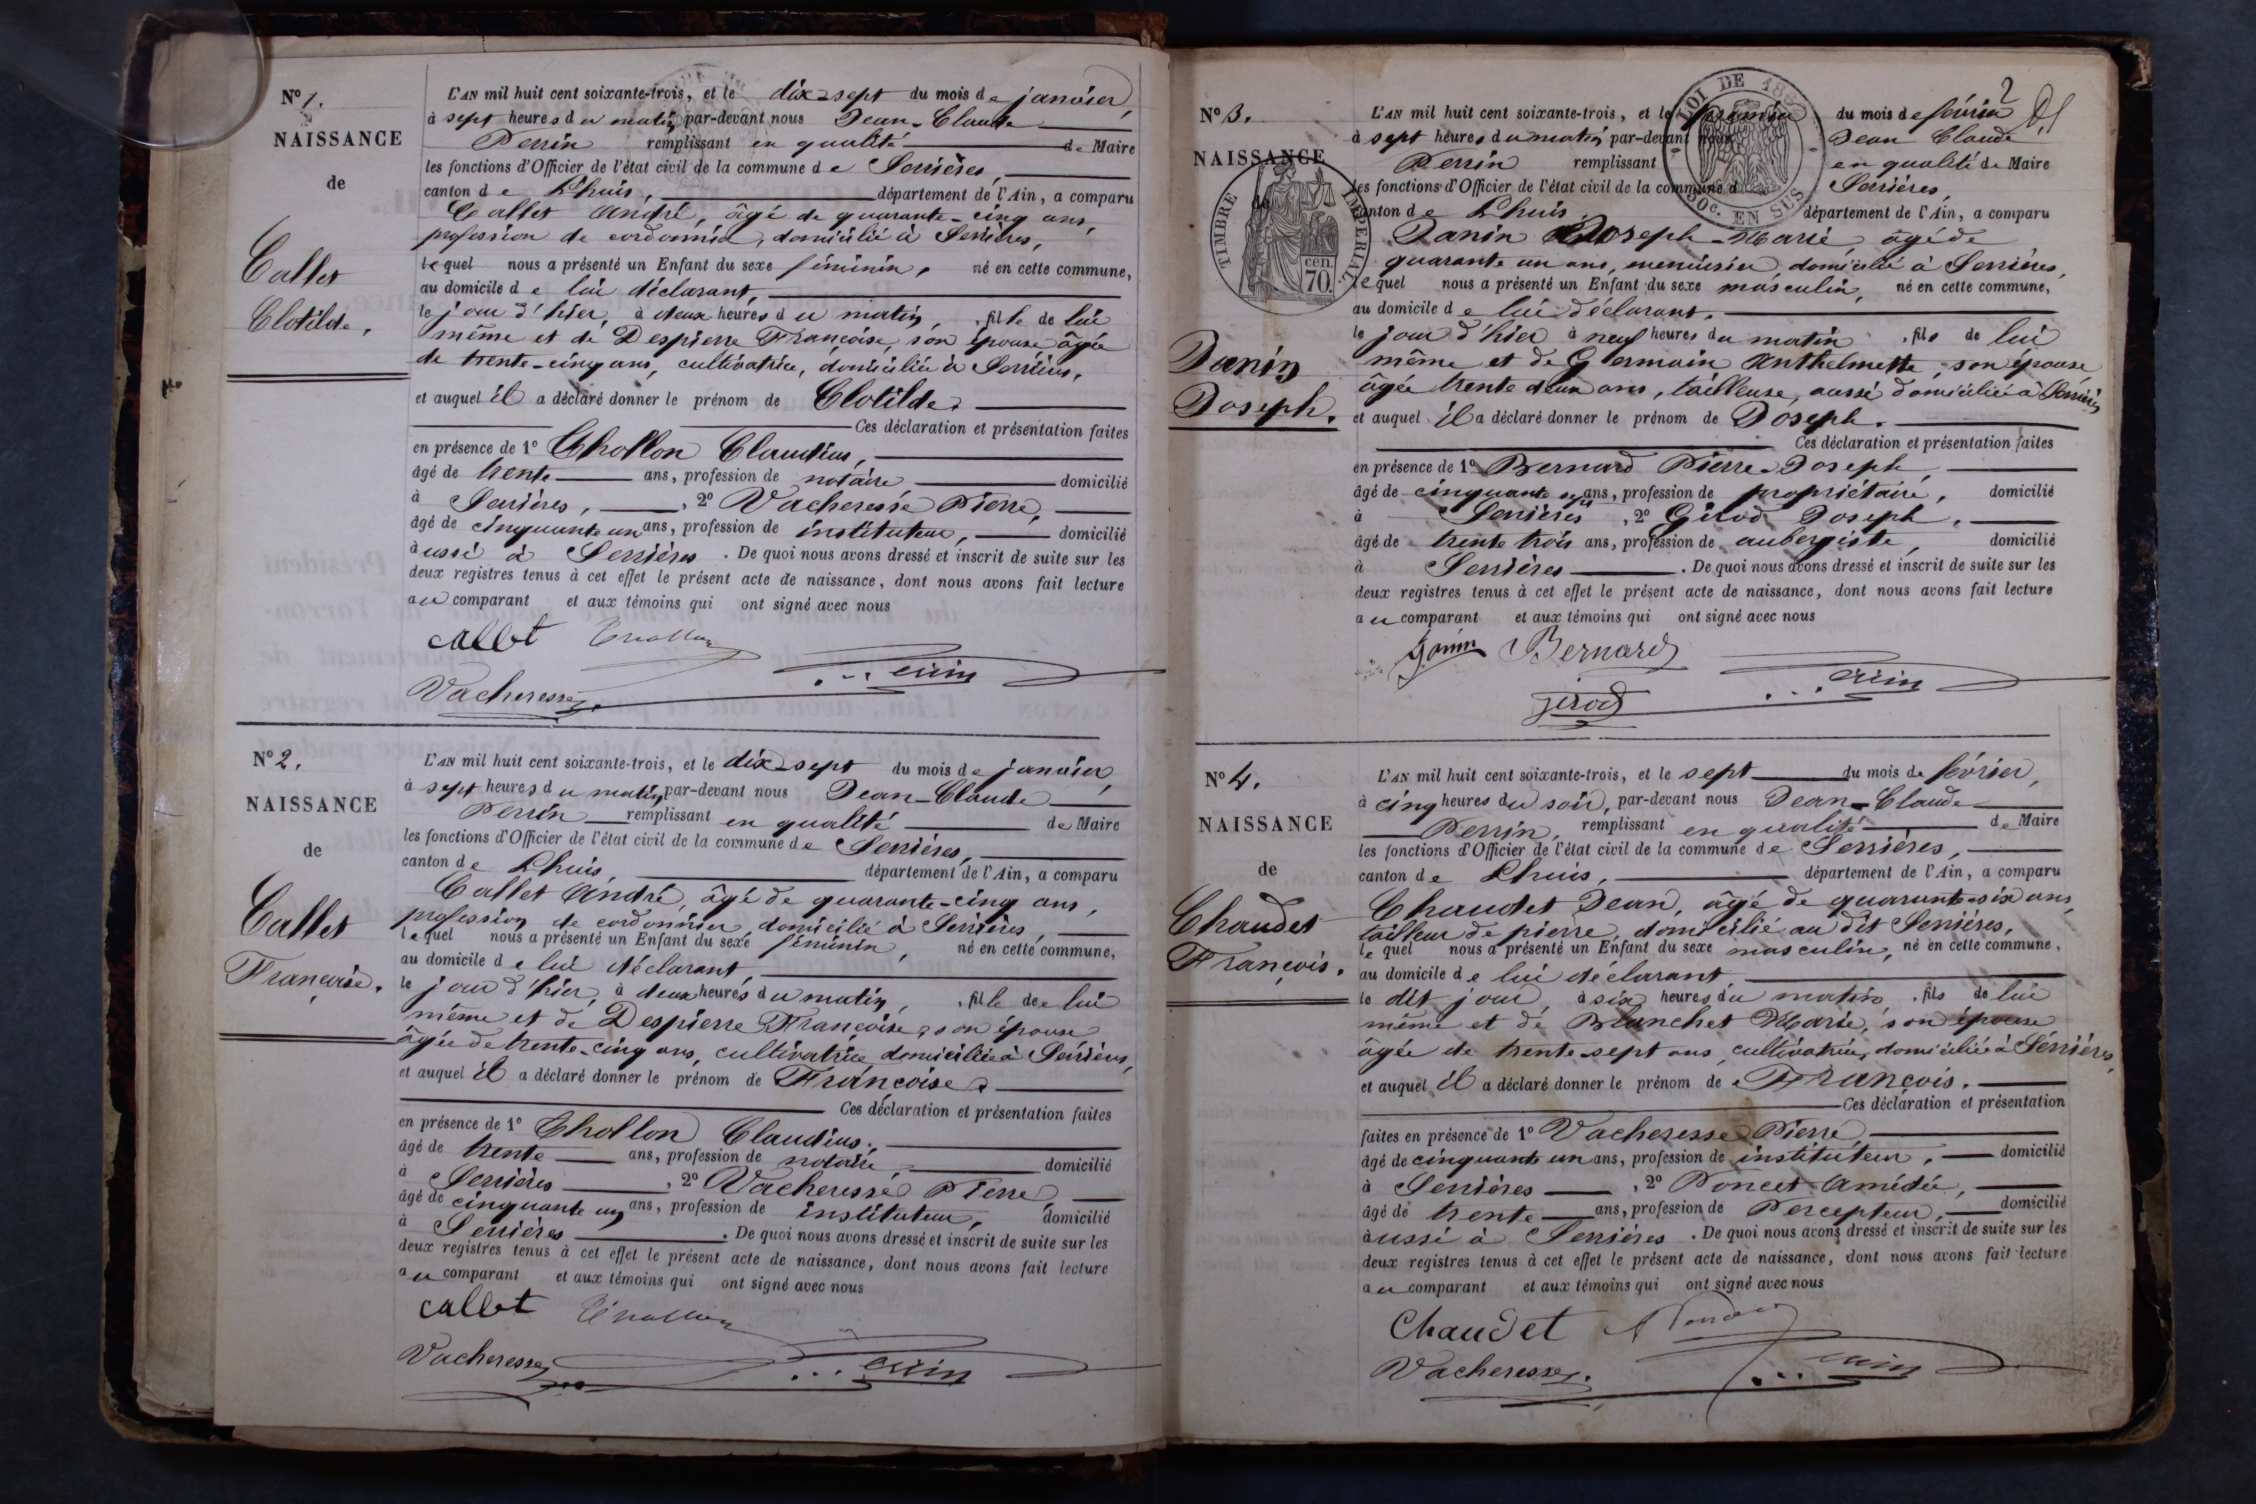 N° 1.
NAISSANCE
de
Callet
Clotilde.
L'AN mil huit cent soixante-trois, et le dix-sept du mois de janvier,
à sept heures du matin, par-devant nous Jean-Claude
Perrin remplissant en qualité de Maire
les fonctions d'Officier de l'état civil de la commune de Serrières,
canton de Lhuis, département de l'Ain, a comparu
Callet André, âgé de quarante-cinq ans,
profession de cordonnier, domicilié à Serrières,
lequel nous a présenté un Enfant du sexe féminin, né en cette commune,
au domicile de lui déclarant,
le jour d'hier, à deux heures du matin, fille de lui
même et de Despierre Françoise, son épouse âgée
de trente-cinq ans, cultivatrice, domiciliée à Serrières,
et auquel il a déclaré donner le prénom de Clotilde.
Ces déclaration et présentation faites
en présence de 1° Chollon Claudius,
âgé de trente ans, profession de notaire domicilié
à Serrières, , 2° Vacheresse Pierre,
âgé de cinquante un ans, profession de instituteur, domicilié
aussi à Serrières. De quoi nous avons dressé et inscrit de suite sur les
deux registres tenus à cet effet le présent acte de naissance, dont nous avons fait lecture
au comparant et aux témoins qui ont signé avec nous
Callet Chollon
Perrin
Vacheresse
N° 2.
NAISSANCE
de
Callet
Françoise.
L'AN mil huit cent soixante-trois, et le dix-sept du mois de janvier,
à sept heures du matin, par-devant nous Jean-Claude
Perrin remplissant en qualité de Maire
les fonctions d'Officier de l'état civil de la commune de Serrières,
canton de Lhuis département de l'Ain, a comparu
Callet André, âgé de quarante-cinq ans,
profession de cordonnier, domicilié à Serrières,
lequel nous a présenté un Enfant du sexe féminin, né en cette commune,
au domicile de lui déclarant,
le jour d'hier, à deux heures du matin, fille de lui
même et de Despierre Françoise, son épouse
âgée de trente-cinq ans, cultivatrice domiciliée à Serrières,
et auquel il a déclaré donner le prénom de Françoise.
Ces déclaration et présentation faites
en présence de 1° Chollon Claudius.
âgé de trente ans, profession de notaire, domicilié
à Serrières , 2° Vacheresse Pierre,
âgé de cinquante un ans, profession de instituteur, domicilié
à Serrières . De quoi nous avons dressé et inscrit de suite sur les
deux registres tenus à cet effet le présent acte de naissance, dont nous avons fait lecture
au comparant et aux témoins qui ont signé avec nous
Callet Chollon
Vacheresse Perrin
2
LOI DE
50c. EN SUS
TIMBRE IMPÉRIAL
cen.
70.
N° 3.
NAISSANCE
de
Janin
Joseph.
L'AN mil huit cent soixante-trois, et le premier du mois de février
à sept heures du matin par-devant nous Jean Claude
Perrin remplissant en qualité de Maire
les fonctions d'Officier de l'état civil de la commune d Serrières,
canton de Lhuis, département de l'Ain, a comparu
Janin Joseph-Marie, âgé de
quarante un ans, menuisier, domicilié à Serrières,
lequel nous a présenté un Enfant du sexe masculin, né en cette commune,
au domicile de lui déclarant.
le jour d'hier à neuf heures du matin , fils de lui
même et de Germain Anthelmette, son épouse
âgée trente deux ans, tailleuse, aussi domiciliée à Serrières
et auquel il a déclaré donner le prénom de Joseph.
Ces déclaration et présentation faites
en présence de 1° Bernard Pierre-Joseph,
âgé de cinquante ans, profession de propriétaire, domicilié
à Serrières , 2° Girod Joseph,
âgé de trente trois ans, profession de aubergiste, domicilié
à Serrières . De quoi nous avons dressé et inscrit de suite sur les
deux registres tenus à cet effet le présent acte de naissance, dont nous avons fait lecture
au comparant et aux témoins qui ont signé avec nous
Janin Bernard
Perrin
Girod
N° 4.
NAISSANCE
de
Chaudet
François.
L'AN mil huit cent soixante-trois, et le sept du mois de février,
à cinq heures du soir, par-devant nous Jean-Claude
Perrin, remplissant en qualité de Maire
les fonctions d'Officier de l'état civil de la commune de Serrières,
canton de Lhuis, département de l'Ain, a comparu
Chaudet Jean, âgé de quarante-six ans,
tailleur de pierre, domicilié au dit Serrières,
lequel nous a présenté un Enfant du sexe masculin, né en cette commune,
au domicile de lui déclarant
le dit jour, à six heures du matin , fils de lui
même et de Blanchet Marie, son épouse
âgée de trente-sept ans, cultivatrice, domiciliée à Serrières,
et auquel il a déclaré donner le prénom de François.
Ces déclaration et présentation
faites en présence de 1° Vacheresse Pierre
âgé de cinquante un ans, profession de instituteur, domicilié
à Serrières , 2° Poncet Amédée,
âgé de trente ans, profession de Percepteur, domicilié
aussi à Serrières . De quoi nous avons dressé et inscrit de suite sur les
deux registres tenus à cet effet le présent acte de naissance, dont nous avons fait lecture
au comparant et aux témoins qui ont signé avec nous
Chaudet
Vacheresse Perrin